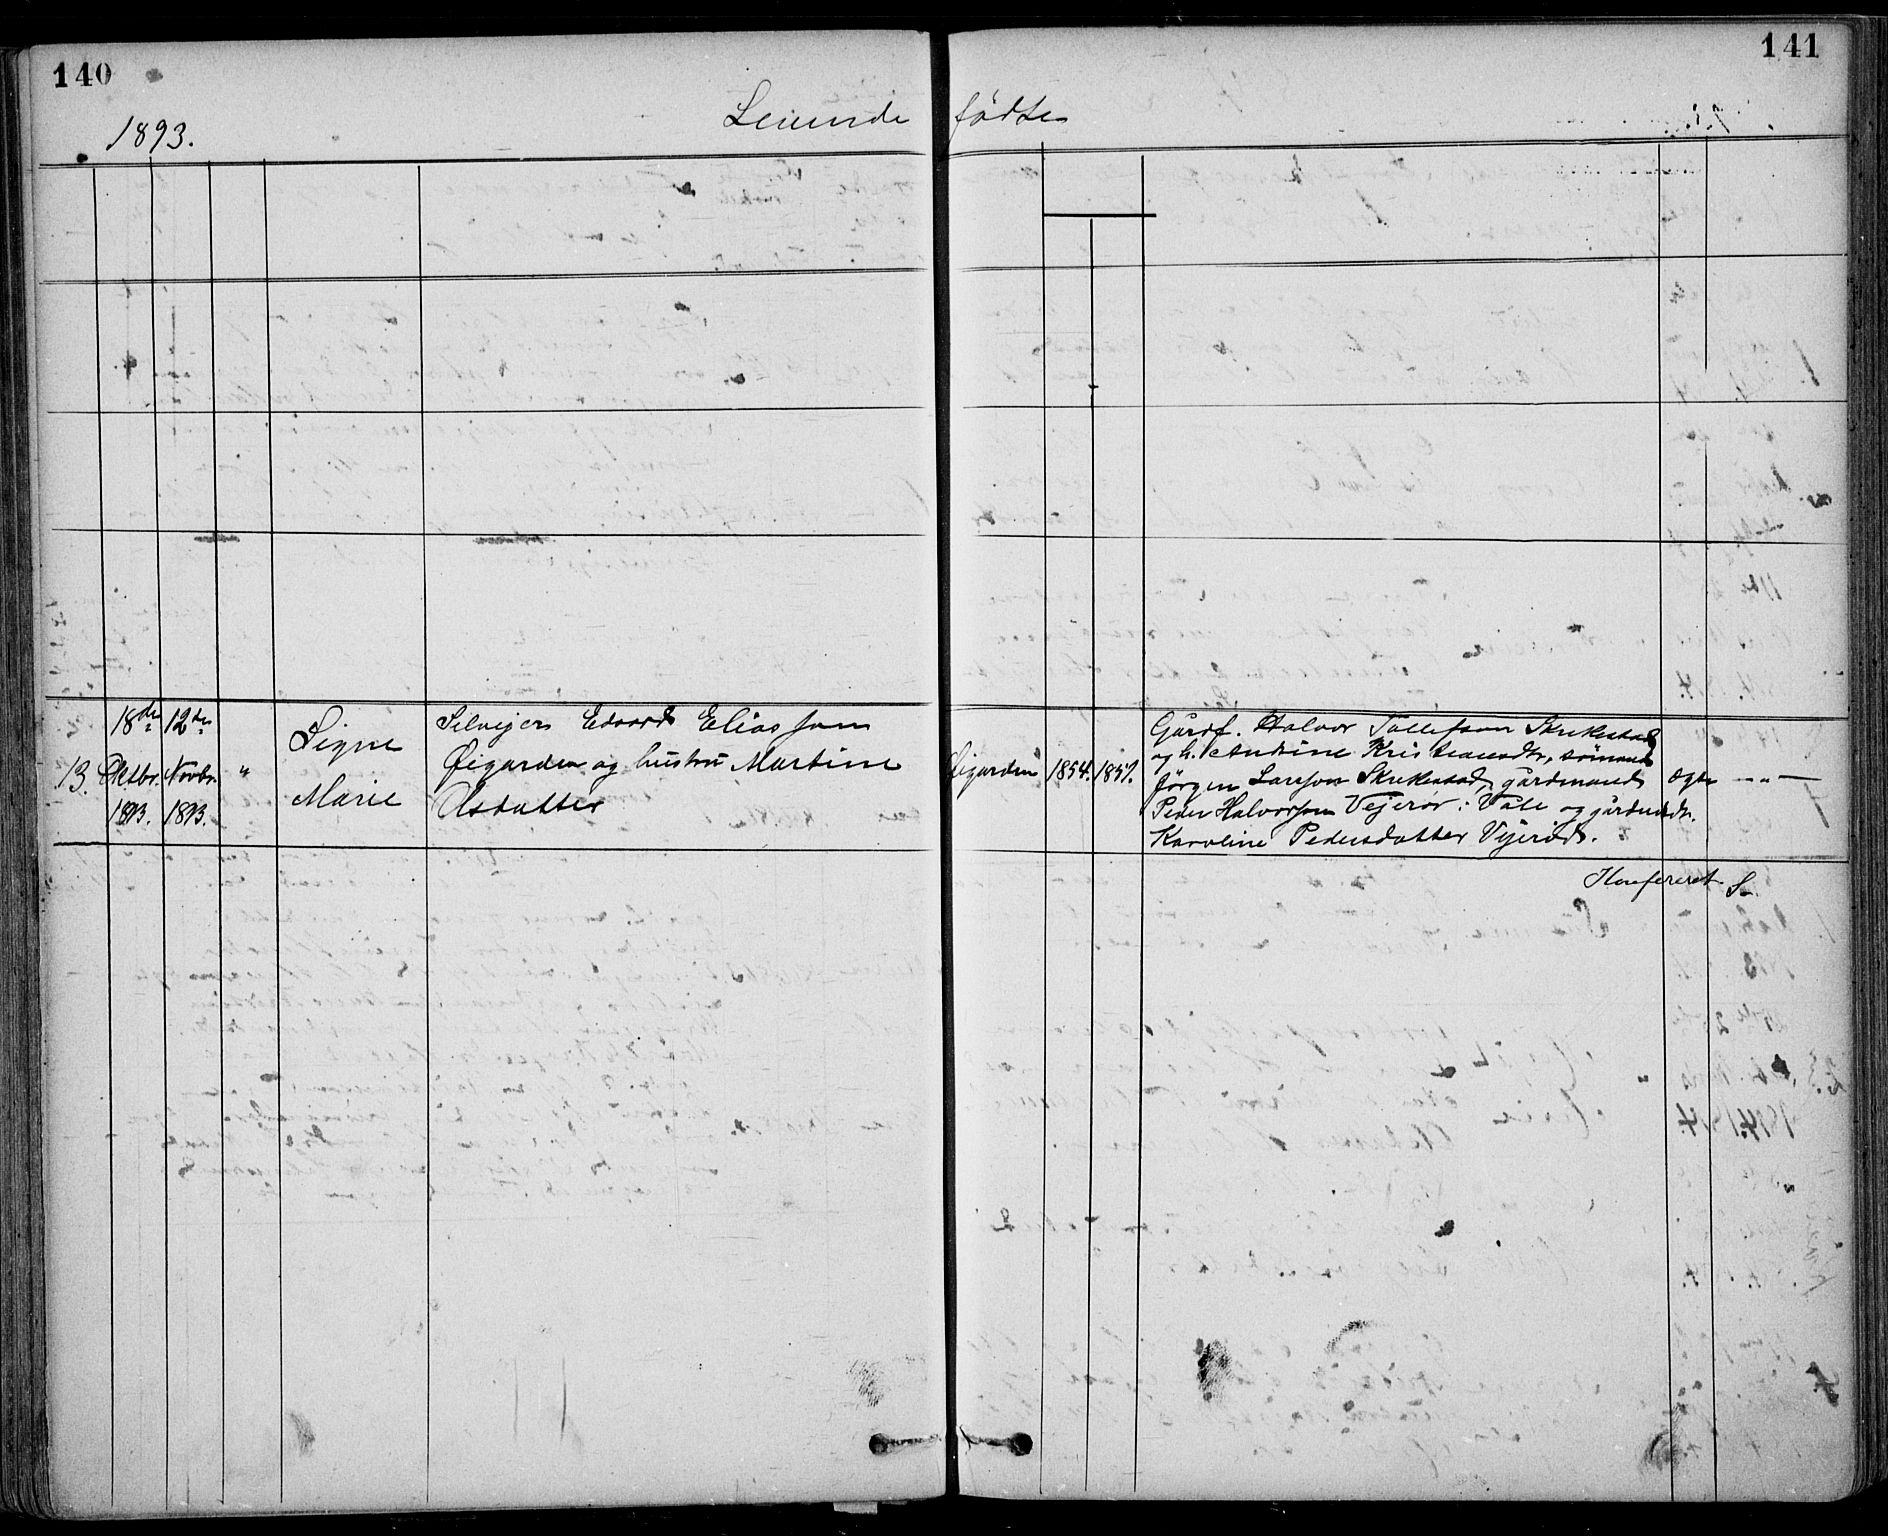 140
141
1893.
Levende fødte
13.
18de Oktbr. 1893.
12te Novbr. 1893.
"
Signe
Marie
Selvejer Edvard Eliassen
Øigarden og hustru Martine
Olsdatter
Øigarden
1854.
1857.
Gårdf. Halvor Tollefsen Skrikestad
og h. Andrine Kristiansdtr, sömand
Jörgen Larsson Skrikestad, gårdmand
Peder Halvorsson Vejeröd i Våle og gårdmdtr.
Karoline Pedersdatter Vejeröd.
ægte
—"—
Konfereret S.